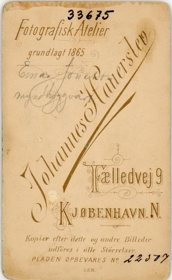 33675
Fotografisk Atelier
grundlagt 1865
Johannes Hauerslev
Fælledvej 9
KJØBENHAVN. N.
Kopier efter dette og andre Billeder
udføres i alle Størrelser.
PLADEN OPBEVARES No 22507